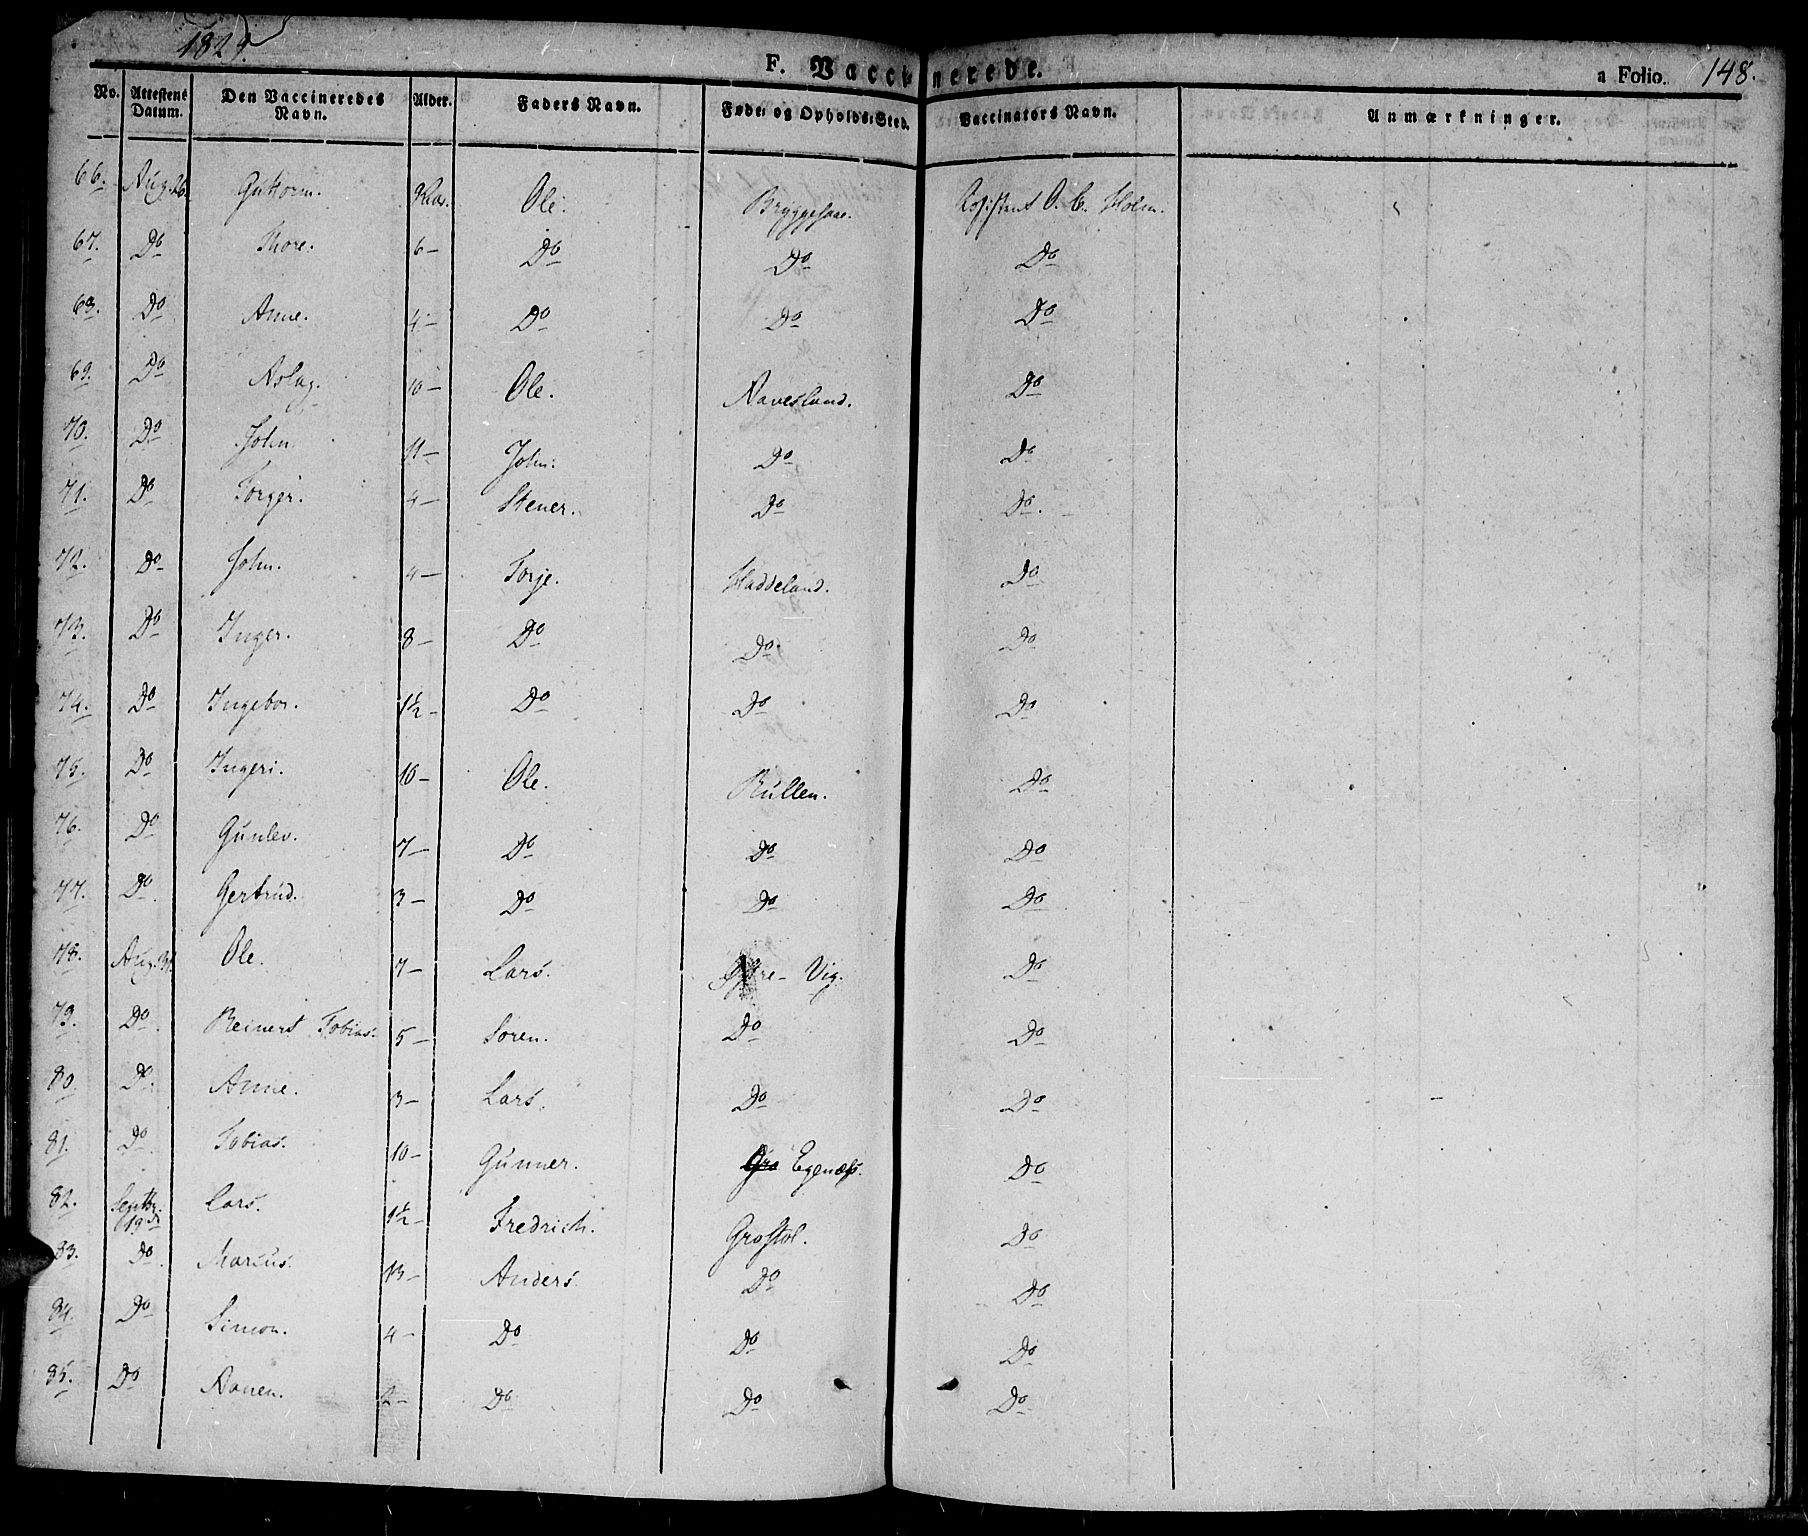 1829.
F. Vaccinerede.
a Folio. 148.
No. Attestens Datum. Den Vaccineredes Navn. Alder. Faders Navn. Føde- og Opholds-Sted. Vaccinators Navn. Anmærkninger.
66. Aug. 26. Guttorm. Ole. Bryggesaae. O. C. Holm.
67. Do Thore. 6 – Do Do Do
68. Do Anne. 4 – Do Do Do
69. Do Aslag. 10 – Ole. Aavesland. Do
70. Do John 11 – John. Do Do
71. Do Torger. 4 – Stener. Do Do.
72. Do John. 4 – Torje. Haddeland. Do
73. Do Inger. 8 – Do Do Do
74. Do Ingebor. 1½ – Do Do Do
75. Do Ingeri. 10 – Ole. Rullen. Do
76. Do Gunlev. 7 – Do Do Do
77. Do. Gertrud. 3 – Do Do Do
78. Aug. 31. Ole. 7 – Lars. Øfre – Vig. Do
79. Do. Reinert Tobias. 5 – Soren. Do Do
80. Do. Anne. 3 – Lars. Do Do
81. Do. Tobias. 10 – Gunner. Egenæss. Do
82. Septbr. 19de Lars. 1½ – Fredrich. Grostøl. Do
83. Do. Marcus. 13 – Anders. Do Do
84. Do Simon. 4 – Do Do Do
85. Do Aanen. 2 – Do Do Do